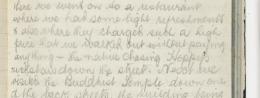 there we went on to a restaurant
where we had some light refreshments
& also where they charged such a high
price that we walked out without paying
anything - the native chasing Hopper's
rickshaw down the street. Next we
visited the Buddhist Temple down one
of the dock streets, the building being